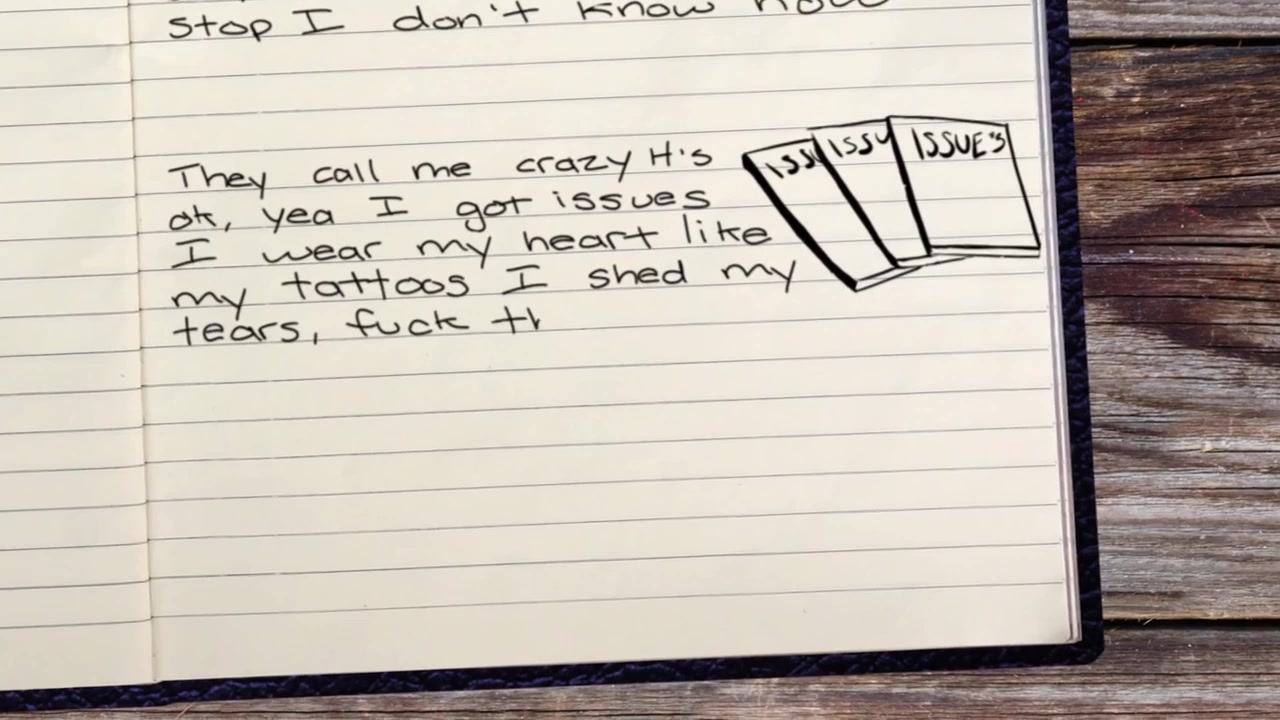 stop I don't know how
They call me crazy it's
ok, yea I got issues
I wear my heart like
my tattoos I shed my
tears, fuck th
ISSU
ISSU
ISSUE'S